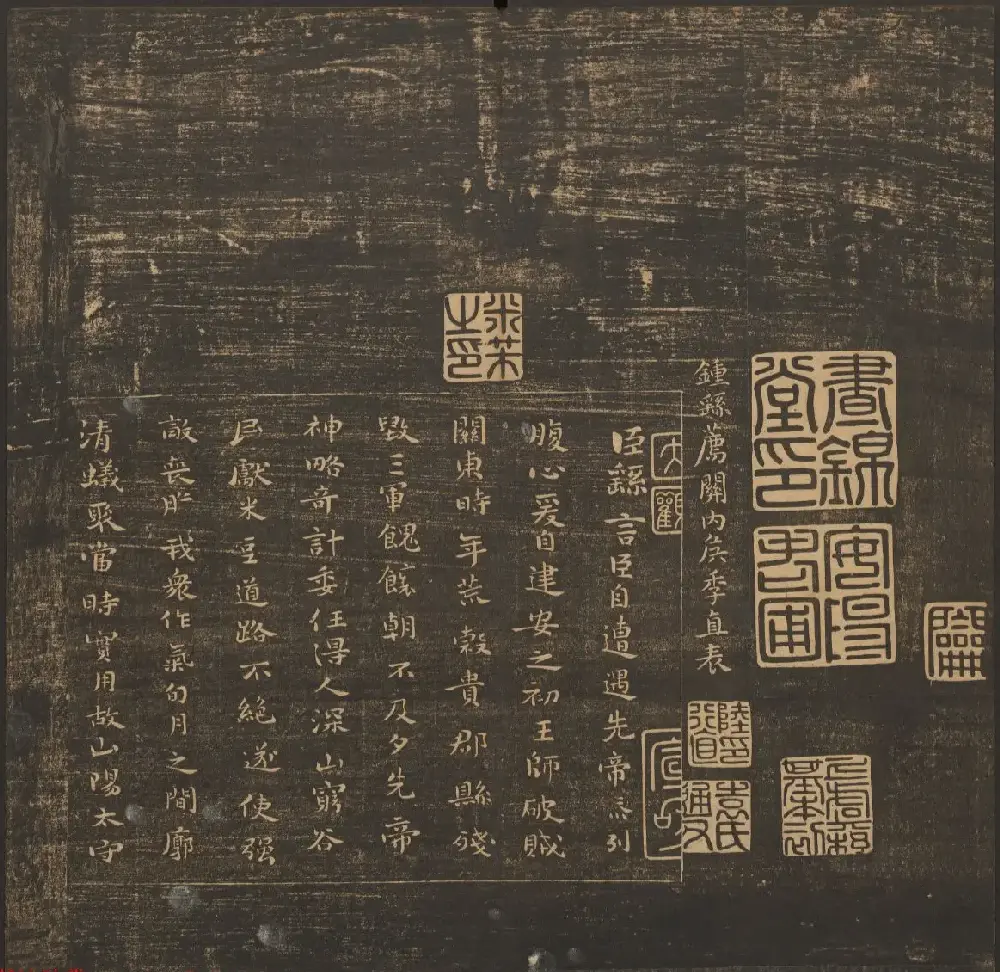 鍾繇薦關內侯季直表
臣繇言臣自遭遇先帝忝列
腹心爰自建安之初王師破賊
關東時年荒穀貴郡縣殘
毀三軍餽饟朝不及夕先帝
神略奇計委任得人深山窮谷
民獻米豆道路不絕遂使强
敵喪膽我衆作氣旬月之間廓
清蟻聚當時實用故山陽太守
米芾
之印
晝錦
堂印
大觀
陸
行直
袁氏
通父